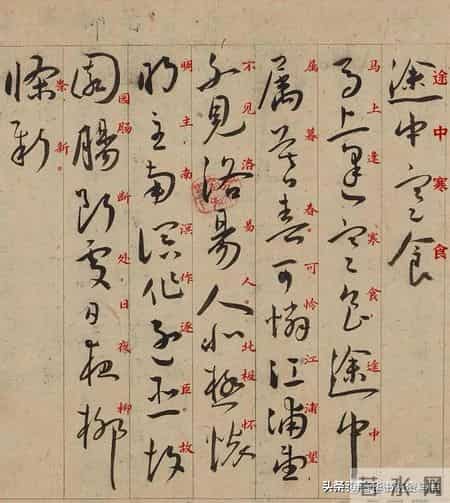 途中寒食
途中寒食
馬上逢寒食途中
马上逢寒食途中
屬暮春可憐江浦望
属暮春可怜江浦望
不見洛易人北極懷
不见洛易人北极怀
明主南溟作逐臣故
明主南溟作逐臣故
園腸斷處日夜柳
国肠断处日夜柳
條新
新